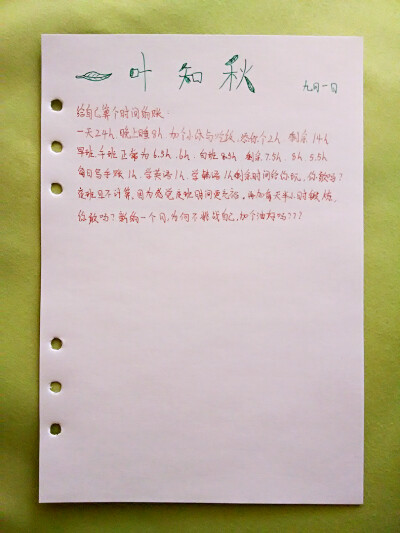 一叶知秋
九月一日
给自己算个时间的账.
一天24h 晚上睡8h 加个小休与吃饭,给你个2h 剩余14h
早班,午班 正常为 6.5h .6h. 白班 8.5h 剩余7.5h. 8h 5.5h
每日写手账1h,学英语1h,学 1h 剩余时间给你玩,你敢吗?
夜班且不计算,因为感觉夜班时间更充裕.再加每天半小时锻炼,
你敢吗?新的一个月,为何不挑战自己,加个油好吗???